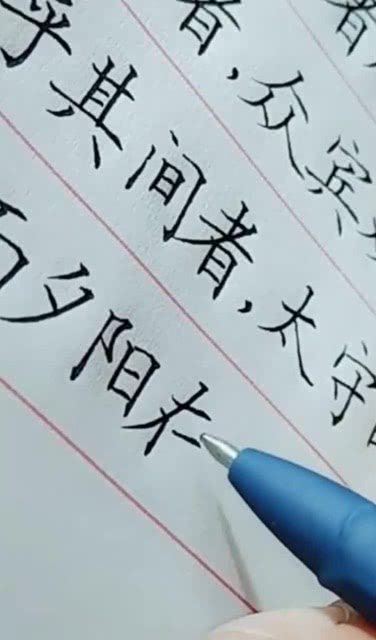 者
者,众宾
乎其间者,太守
而夕阳